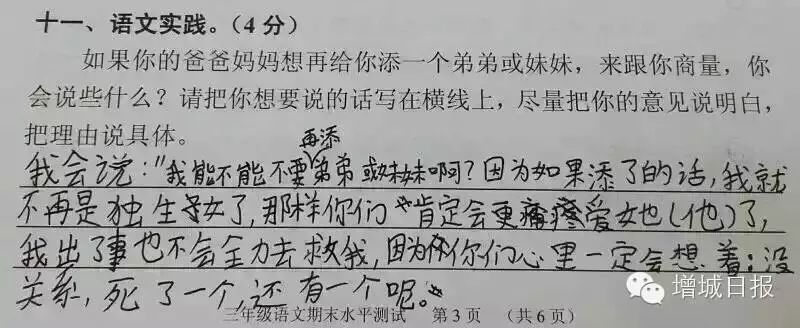 十一、语文实践。（4分）
如果你的爸爸妈妈想再给你添一个弟弟或妹妹，来跟你商量，你
会说些什么？请把你想要说的话写在横线上，尽量把你的意见说明白，
把理由说具体。
再添
我会说："我能不能不要弟弟或妹妹啊？因为如果添了的话，我就
不再是独生子女了，那样你们肯定会更疼爱她（他）了，
我出了事也不会全力去救我，因为你们心里一定会想着：没
关系，死了一个，还有一个呢。"
三年级语文期末水平测试 第3页 （共6页）
增城日报